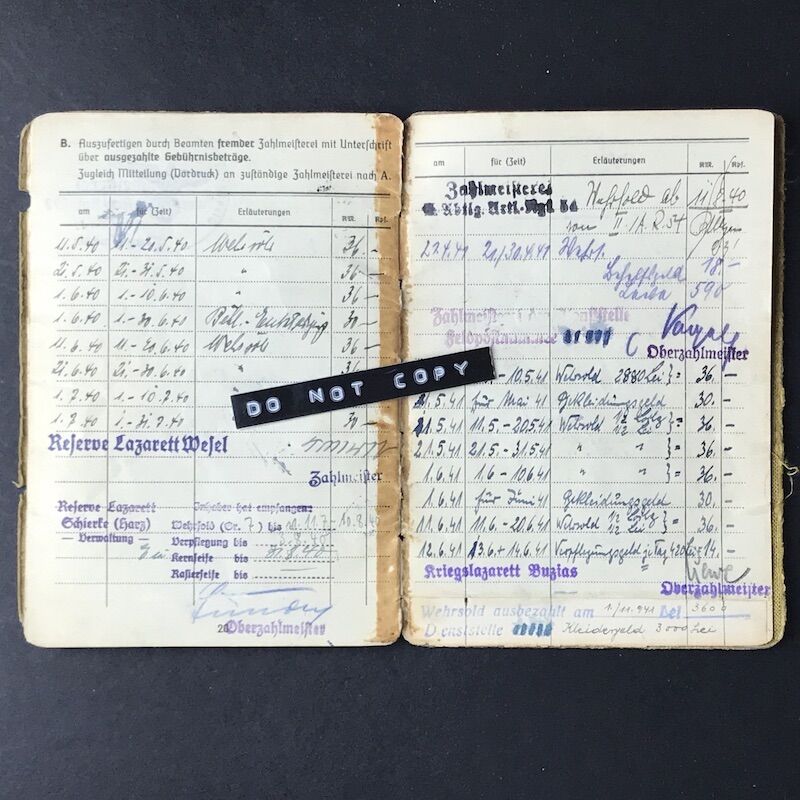 B. Auszufertigen durch Beamten fremder Zahlmeisterei mit Unterschrift
über ausgezahlte Gebührnisbeträge.
Zugleich Mitteilung (Vordruck) an zuständige Zahlmeisterei nach A.
am für (Zeit) Erläuterungen RM. Rpf.
11.5.40 11.-20.5.40 Wehrsold 36 -
21.5.40 21.-31.5.40 " 36 -
1.6.40 1.-10.6.40 " 36 -
1.6.40 1.-30.6.40 30 -
11.6.40 11.-20.6.40 Wehrsold 36 -
21.6.40 21.-30.6.40 "
1.7.40 1.-10.7.40
1.7.40 1.-31.7.40 30 -
Reserve Lazarett Wesel
Zahlmeister
Reserve Lazarett
Schierke (Harz)
— Verwaltung —
Inhaber hat empfangen:
Wehrsold (Gr. 7) bis 10.8.40
Verpflegung bis
Kernseife bis 31.8.40
Rasierseife bis
20
Oberzahlmeister
am für (Zeit) Erläuterungen RM. Rpf.
Zahlmeisterei
Wehrsold ab 11/8.40
von II./A.R.54
22.4.41 21/30.4.41 Wehrs.
18.-
590
Zahlmeisterei Dienststelle
Feldpostnummer
Oberzahlmeister
DO NOT COPY
- 10.5.41 Wehrsold 2880 Lei = 36. -
21.5.41 für Mai 41 Bekleidungsgeld 30. -
21.5.41 11.5.-20.5.41 Wehrsold = 36. -
21.5.41 21.5.-31.5.41 " " = 36. -
1.6.41 1.6-10.6.41 " " = 36. -
1.6.41 für Juni 41 Bekleidungsgeld 30. -
11.6.41 11.6.-20.6.41 Wehrsold = 36. -
12.6.41 13.6.+14.6.41 Verpflegungsgeld je Tag 420 Lei = 14. -
Kriegslazarett Buzias
Oberzahlmeister
Wehrsold ausbezahlt am 1/11.941 Lei 3600
Dienststelle Kleidergeld 3000 Lei